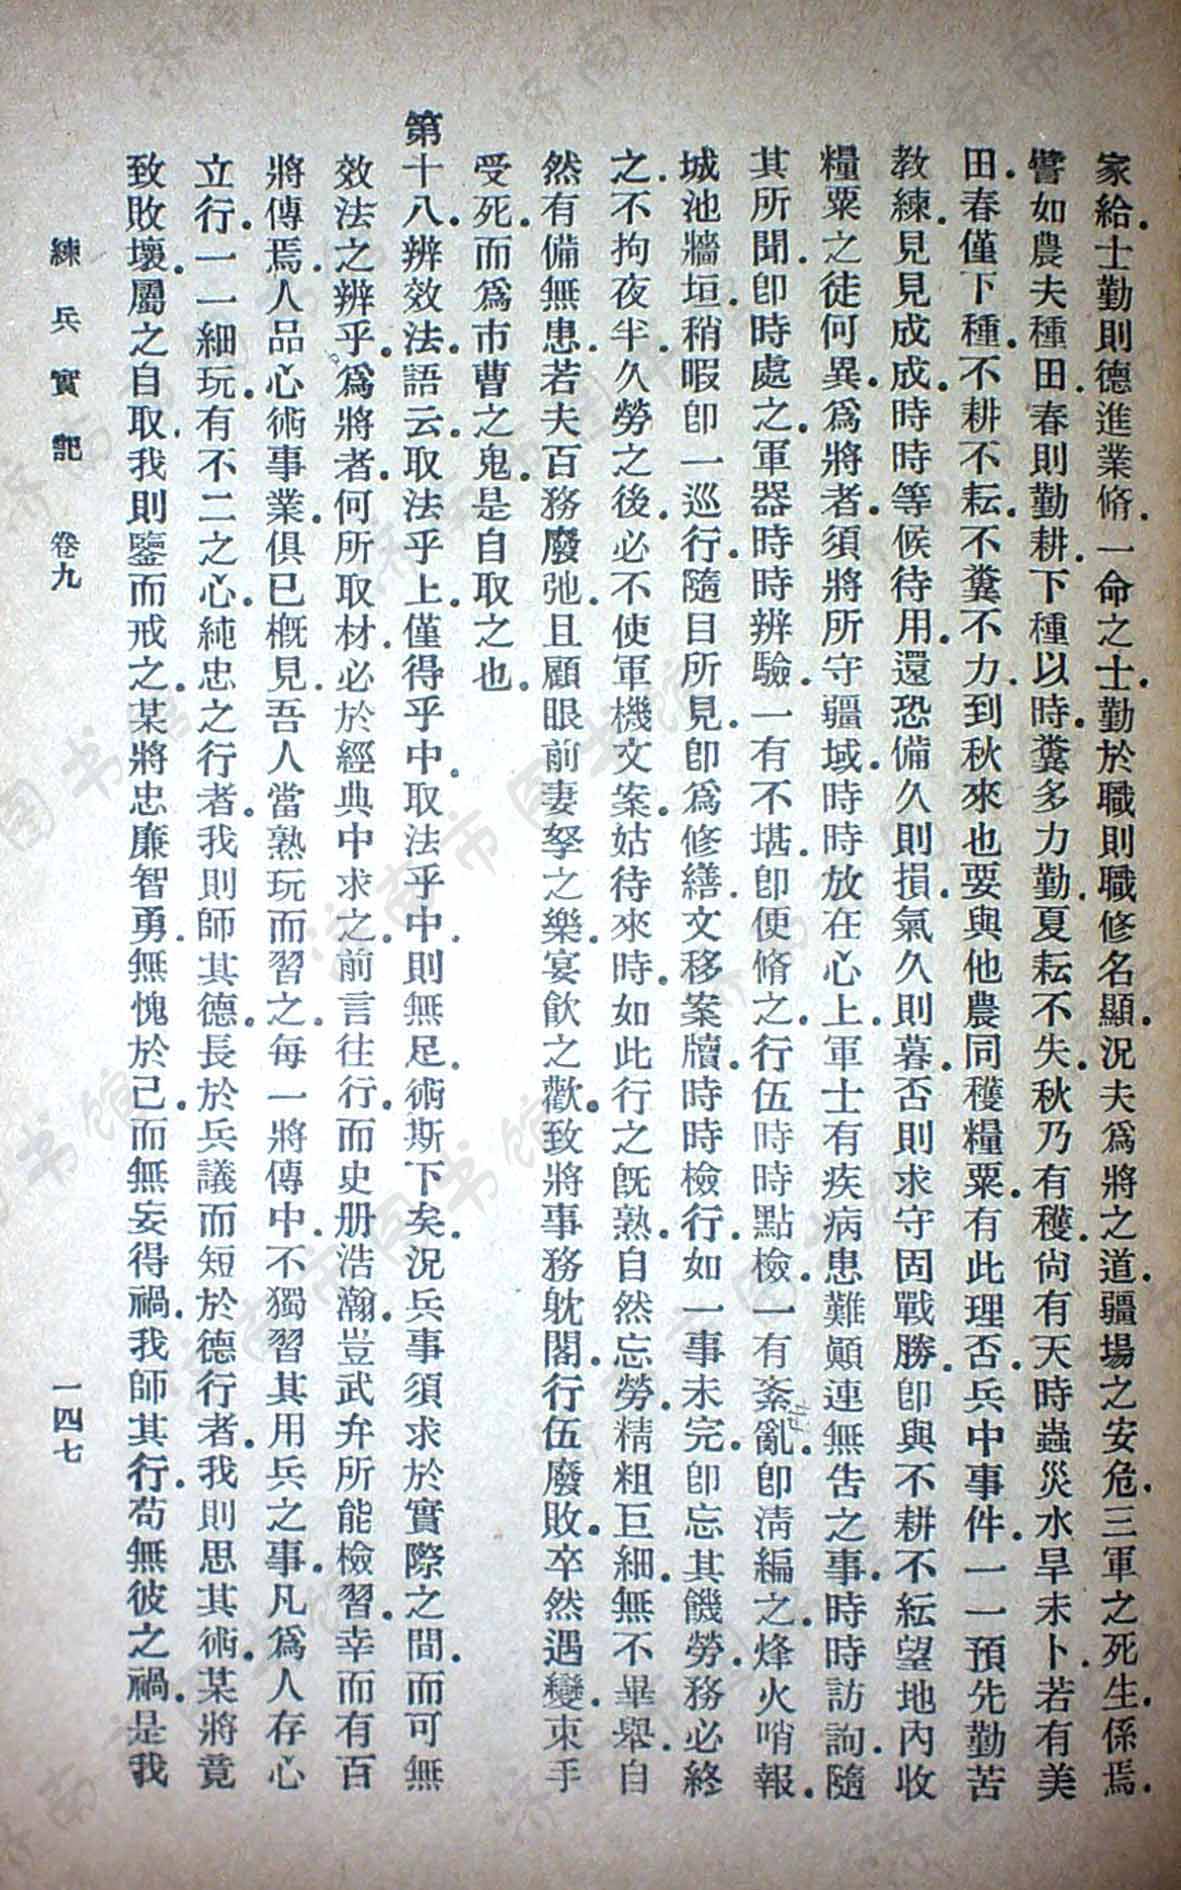 家給。士勤則德進業脩。一命之士。勤於職則職修名顯。況夫爲將之道。疆場之安危。三軍之死生。係焉。
譬如農夫種田。春則勤耕。下種以時。糞多力勤。夏耘不失。秋乃有穫。尙有天時蟲災水旱未卜。若有美
田。春僅下種。不耕不耘。不糞不力。到秋來也要與他農同穫糧粟。有此理否。兵中事件。一一預先勤苦
教練。見見成成。時時等候待用。還恐備久則損。氣久則暮。否則求守固戰勝。卽與不耕不紜望地內收
糧粟之徒何異。爲將者。須將所守疆域。時時放在心上。軍士有疾病患難顚連無吿之事。時時訪詢。隨
其所聞。卽時處之。軍器時時辨驗。一有不堪。卽便脩之。行伍時時點檢。一有紊亂。卽淸編之。烽火哨報。
城池牆垣。稍暇卽一巡行。隨目所見。卽爲修繕。文移案牘。時時檢行。如一事未完。卽忘其饑勞。務必終
之。不拘夜半。久勞之後。必不使軍機文案。姑待來時。如此行之旣熟。自然忘勞。精粗巨細。無不畢舉。自
然有備無患。若夫百務廢弛。且顧眼前妻孥之樂。宴飮之歡。致將事務躭閣。行伍廢敗。卒然遇變。束手
受死。而爲市曹之鬼。是自取之也。
第十八。辨效法。語云。取法乎上。僅得乎中。取法乎中。則無足術斯下矣。況兵事須求於實際之間。而可無
效法之辨乎。爲將者。何所取材。必於經典中求之。前言往行。而史册浩瀚。豈武弁所能檢習。幸而有百
將傳焉。人品心術事業。俱已槪見。吾人當熟玩而習之。每一將傳中。不獨習其用兵之事。凡爲人存心
立行。一一細玩。有不二之心。純忠之行者。我則師其德。長於兵議而短於德行者。我則思其術。某將竟
致敗壞。屬之自取。我則鑒而戒之。某將忠廉智勇。無愧於己。而無妄得禍。我師其行。苟無彼之禍。是我
練兵實記 卷九 一四七